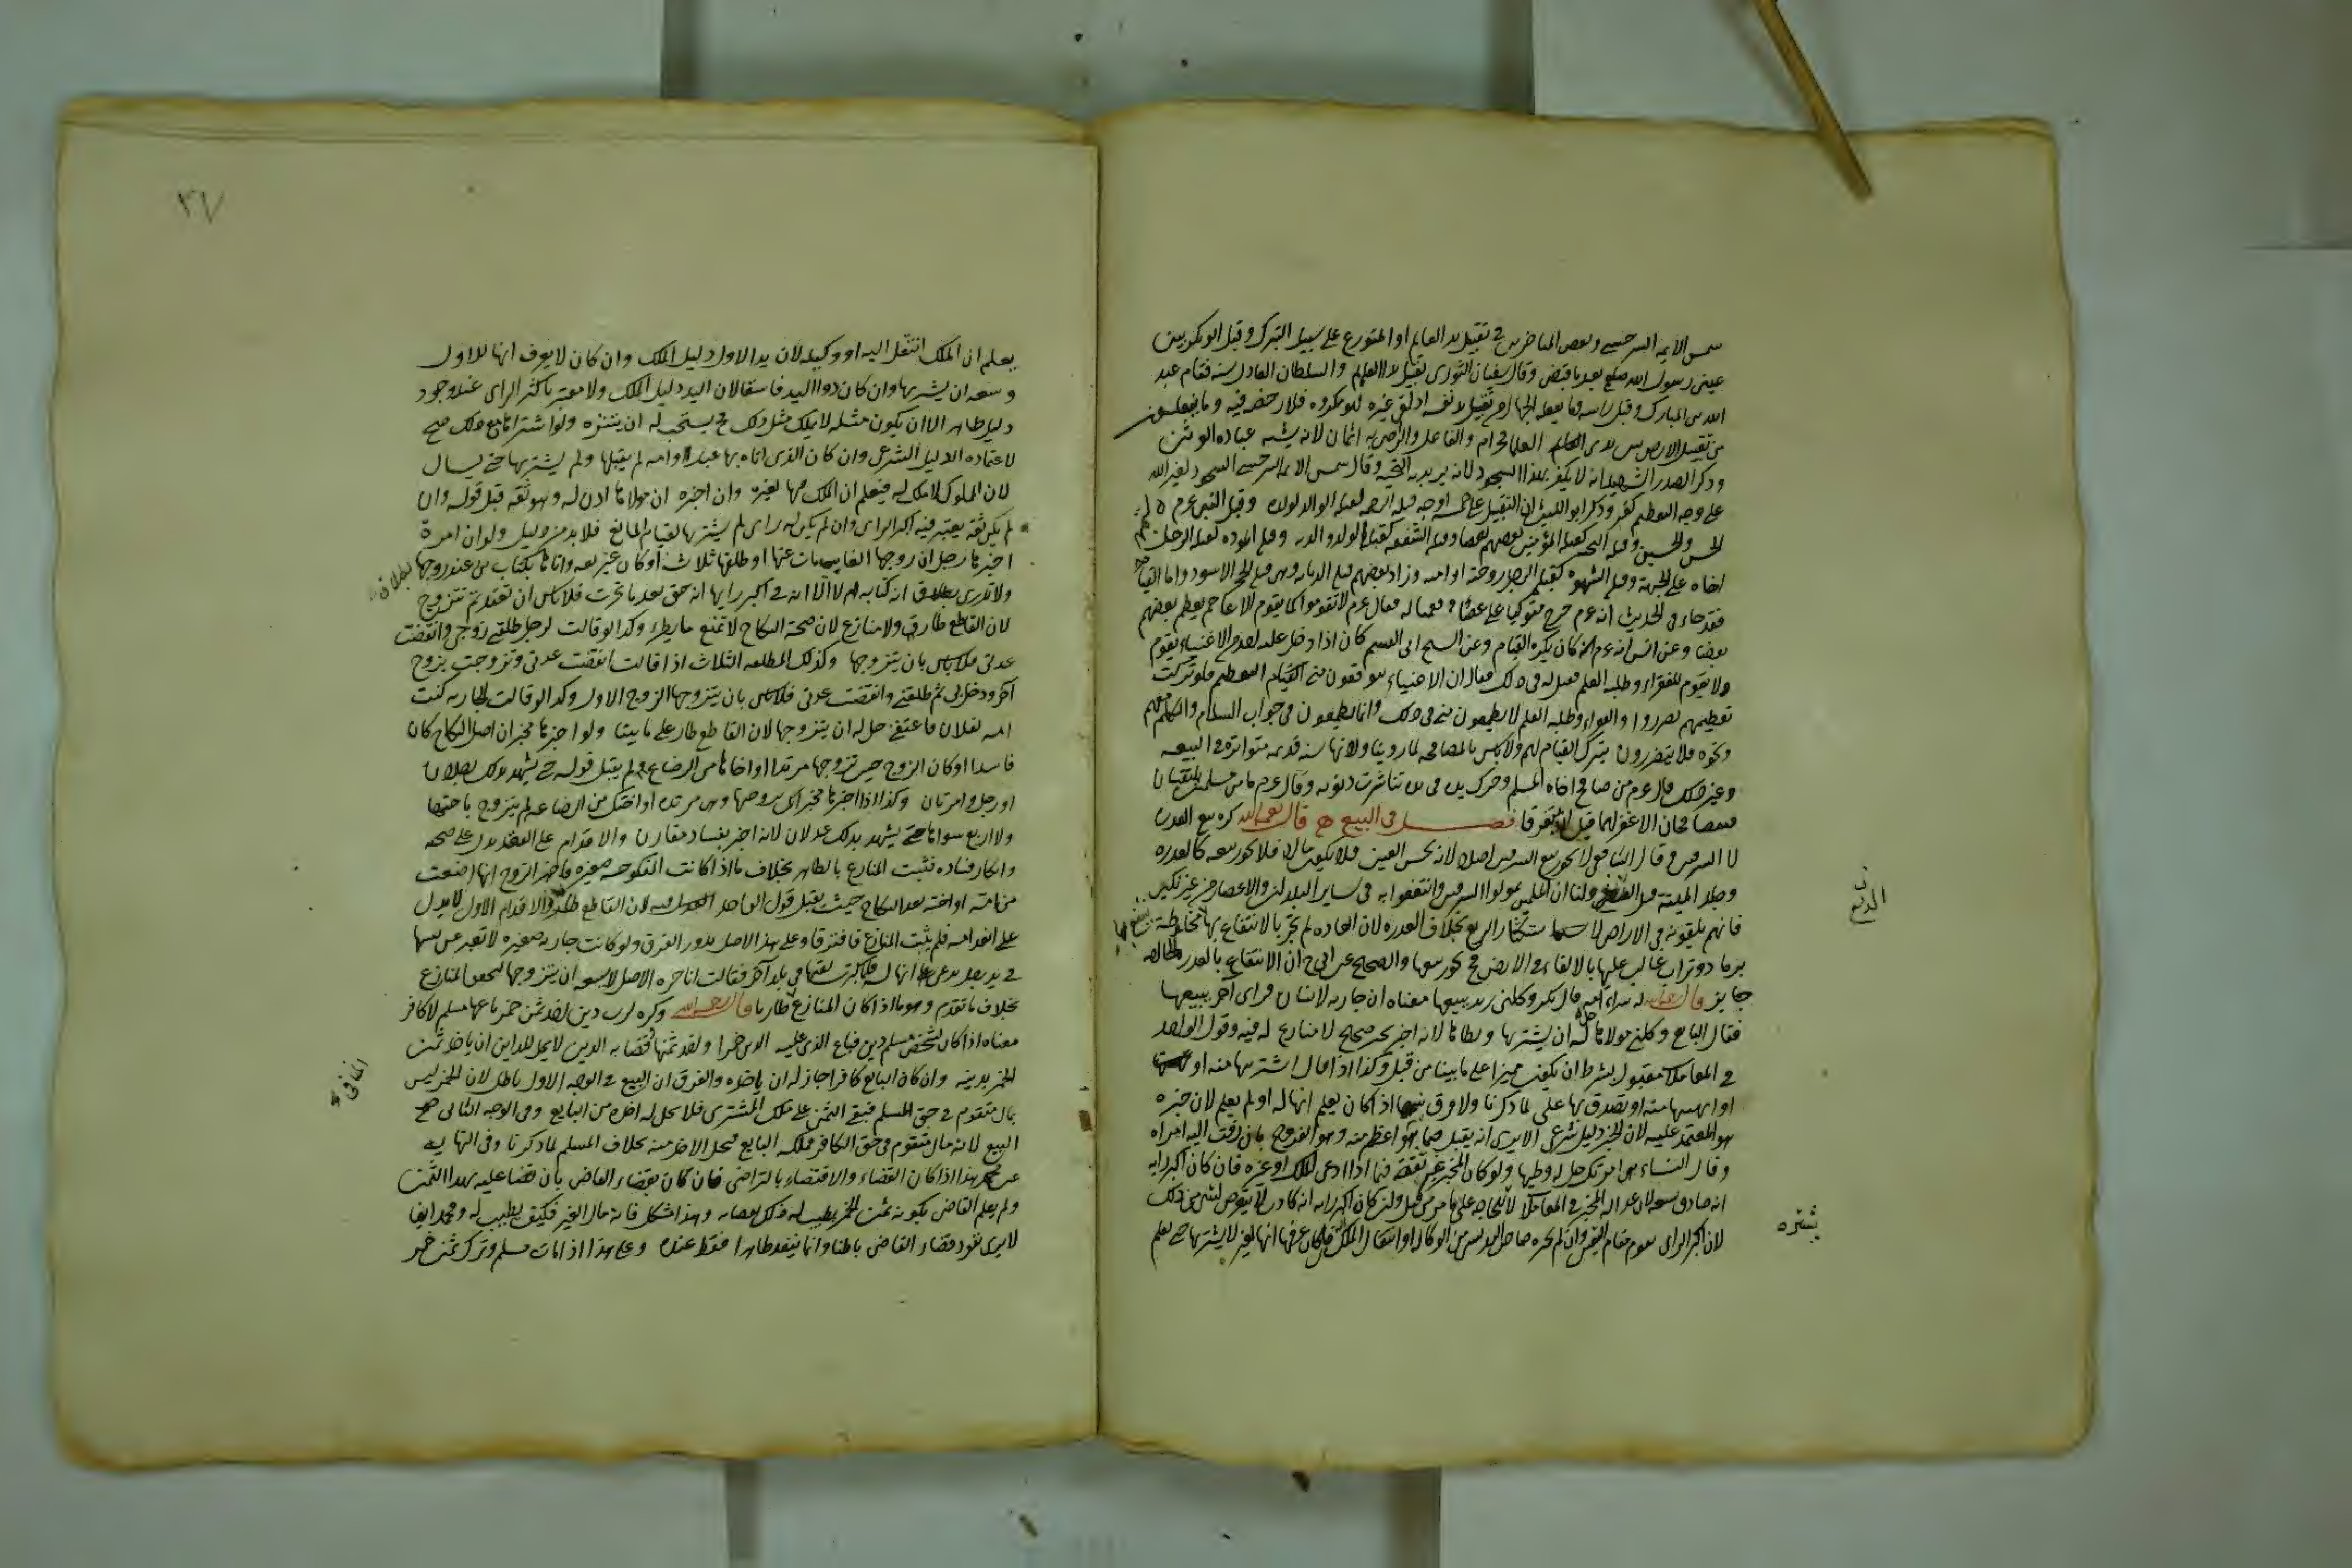 شمس الايمه السرخسي وبعض المتاخرين في تقبيل يد العالم او المتورع على سبيل التبرك وقبل ابو بكر بين
عيني رسول الله صلعم بعد ما قبض وقال سفيان الثوري تقبيل يد العالم والسلطان العادل سنة فقام عبد
الله بن المبارك وقبل راسه وما يفعله الجهال من تقبيل يد نفسه اذا لقي غيره فهو مكروه فلا رخصه فيه وما يفعلون
من تقبيل الارض بين يدي العلما فحرام والفاعل والراضي به اثمان لانه يشبه عبادة الوثن
وذكر الصدر الشهيد انه لا يكفر بهذا السجود لانه يريد به التحية وقال شمس الايمه السرخسي السجود لغير الله
على وجه التعظيم كفر وذكر ابو الليث ان التقبيل على خمسة اوجه قبلة الرحمة كقبلة الوالد لولده وقبل النبي عم
الحسن والحسين وقبلة التحيه كقبلة المؤمنين بعضهم لبعض وقبلة الشفقه كقبلة الولد والديه وقبلة الموده كقبلة الرجل
اخاه على الجبهة وقبلة الشهوة كقبلة الرجل زوجته او امته وزاد بعضهم قبلة الديانه وهي قبلة الحجر الاسود واما القيام
فقد جاء في الحديث انه عم خرج متوكيا على عصا فقمنا له فقال عم لا تقوموا كما يقوم الاعاجم يعظم بعضهم
بعضا وعن انس انه عم كان يكره القيام وعن الشيخ ابي القسم كان اذا دخل عليه احد من الاغنياء يقوم
ولا يقوم للفقراء وطلبه العلم فقيل له في ذلك فقال ان الاغنياء يتوقعون مني القيام والتعظيم فلو تركت
تعظيمهم تضرروا والفقراء وطلبه العلم لا يطمعون مني في ذلك وانما يطمعون في جواب السلام والتكلم معهم
ونحوه فلا يتضررون بترك القيام لهم ولا باس بالمصافحه لما روينا ولانها سنه قديمه متواترة في البيعه
وغير ذلك قال عم من صافح اخاه المسلم وحرك يده في يده تناثرت ذنوبه وقال عم ما من مسلمين يلتقيان
فيتصافحان الا غفر لهما قبل ان يتفرقا فصل في البيع قال رحمه الله كره بيع العذرة
لا السرقين وقال الشافعي لا يجوز بيع السرقين اصلا لانه نجس العين فلا يكون مالا فلا يجوز بيعه كالعذره
وجلد الميتة قبل الدبغ ولنا ان المسلمين تمولوا السرقين وانتفعوا به في ساير البلدان والاعصار من غير نكير
فانهم يلقونه في الاراضي لاستكثار الريع بخلاف العذره لان العاده لم تجر بالانتفاع بها مخلوطة
برماد وتراب غالب عليها بالالقاء في الارض فح يجوز بيعها والصحيح عن ابي ح ان الانتفاع بالعذرة الخالصه
جايز قال رحمه الله له شراء امه قال بكر وكلني زيد ببيعها معناه ان جارية لانسان فراى اخر يبيعها
فقال البايع وكلني مولاها حل له ان يشتريها ويطاها لانه اخبر بخبر صحيح لا منازع له فيه وقول الواحد
في المعاملات مقبول بشرط ان يكون مميزا على ما بينا من قبل وكذا اذا قال اشتريتها منه او
او وهبها منه او تصدق بها على لما ذكرنا ولا فرق بينها اذا كان يعلم انها له او لم يعلم لان خبره
هو المعتمد عليه لان الخبر دليل شرعي الا يرى انه يقبل فيما هو اعظم منه وهو الفروج بان زفت اليه امراه
وقال النساء هي امراتك حل له وطيها ولو كان المخبر غير ثقة فيما اذا ادعى الملك او غيره فان كان اكبر رايه
انه صادق وسعه لان عدالة المخبر في المعاملات لا تلزم للحاجه على ما مر من قبل وان كان اكبر رايه انه كاذب لا يتعرض لشي من ذلك
لان اكبر الراي يقوم مقام اليقين وان لم يخبره صاحب اليد بشي من الوكالة او انتقال الملك فان كان عرفها انها لغيره لا يشتريها حتى يعلم
الدبغ
يشتره
٣٧
يعلم ان الملك انتقل اليه او وكيله لان يد الاول دليل الملك وان كان لا يعرف انها للاول
وسعه ان يشتريها وان كان ذو اليد فاسقا لان اليد دليل الملك ولا معتبر باكثر الراي عند وجود
دليل ظاهر الا ان يكون مثله لا يملك مثل ذلك فح يستحب له ان يتنزه ولو اشتراها مع ذلك صح
لاعتماده الدليل الشرعي وان كان الذي اتاه بها عبدا او امه لم يقبلها ولم يشترها حتى يسال
لان المملوك لا ملك له فيعلم ان الملك فيها لغيره وان اخبره ان مولاها اذن له وهو ثقه قبل قوله وان
لم يكن ثقة يعتبر فيه اكبر الراي وان لم يكن له راي لم يشترها لقيام المانع فلا بد من دليل ولو ان امرة
اخبرها رجل ان زوجها الغايب مات عنها او طلقها ثلاثا او كان غير ثقه واتاها بكتاب من عند زوجها
ولا تدري انه كتابه ام لا الا انه في اكبر رايها انه حق بعد ما تحرت فلا باس ان تعتد ثم تتزوج
لان القاطع طارئ ولا منازع لان صحة النكاح لا تمنع ما يطرا وكذا لو قالت لرجل طلقني زوجي وانقضت
عدتي فلا باس بان يتزوجها وكذلك المطلقه الثلاث اذا قالت انقضت عدتي وتزوجت بزوج
اخر ودخل بي ثم طلقني وانقضت عدتي فلا باس بان يتزوجها الزوج الاول وكذا لو قالت جاريه كنت
امه لفلان فاعتقني حل له ان يتزوجها لان القاطع طار على ما بينا ولو اخبرها مخبر ان اصل النكاح كان
فاسدا او كان الزوج حين تزوجها مرتدا او اخاها من الرضاع لم يقبل قوله حتى يشهد بذلك رجلان
او رجل وامرتان وكذا اذا اخبره مخبر انك تزوجتها وهي مرتدة او اختك من الرضاع لم يتزوج باختها
ولا اربع سواها حتى يشهد بذلك عدلان لانه اخبر بفساد مقارن والاقدام على العقد يدل على صحته
وانكار فساده فثبت المنازع بالظاهر بخلاف ما اذا كانت المنكوحه صغيره فاخبر الزوج انها ارضعت
من امه او اخته بعد النكاح حيث يقبل قول الواحد فيه لان القاطع طار والاقدام الاول لا يدل
على انعدامه فلم يثبت المنازع فافترقا وعلى هذا الاصل يدور الفرق ولو كانت جاريه صغيره لا تعبر عن نفسها
في يد رجل يدعي انها له فلما كبرت لقيها في بلد اخر فقالت انا حره الاصل لا يسعه ان يتزوجها لتحقق المنازع
بخلاف ما تقدم وهو ما اذا كان المنازع طاريا قال رحمه الله وكره لرب دين اخذ ثمن خمر باعها مسلم لا كافر
معناه اذا كان لشخص مسلم دين فباع الذي عليه الدين خمرا واخذ ثمنها وقضا به الدين لا يحل للداين ان ياخذ ثمن
الخمر بدينه وان كان البايع كافرا جاز له ان ياخذه والفرق ان البيع في الوجه الاول باطل لان الخمر ليس
بمال متقوم في حق المسلم فبقي الثمن على ملك المشتري فلا يحل له اخذه من البايع وفي الوجه الثاني صح
البيع لانه مال متقوم في حق الكافر فملكه البايع فيحل الاخذ منه بخلاف المسلم لما ذكرنا وفي النهايه
عن محمد هذا اذا كان القضاء والاقتضاء بالتراضي فان كان بقضاء القاضي بان قضا عليه بهذا الثمن
ولم يعلم القاضي بكونه ثمن الخمر يطيب له ذلك بقضايه وهذا مشكل فانه مال الغير فكيف يطيب له ومحمد ايضا
لا يرى نفوذ قضاء القاضي باطنا وانما ينفذ ظاهرا فقط عنده وعلى هذا اذا مات مسلم وترك ثمن خمر